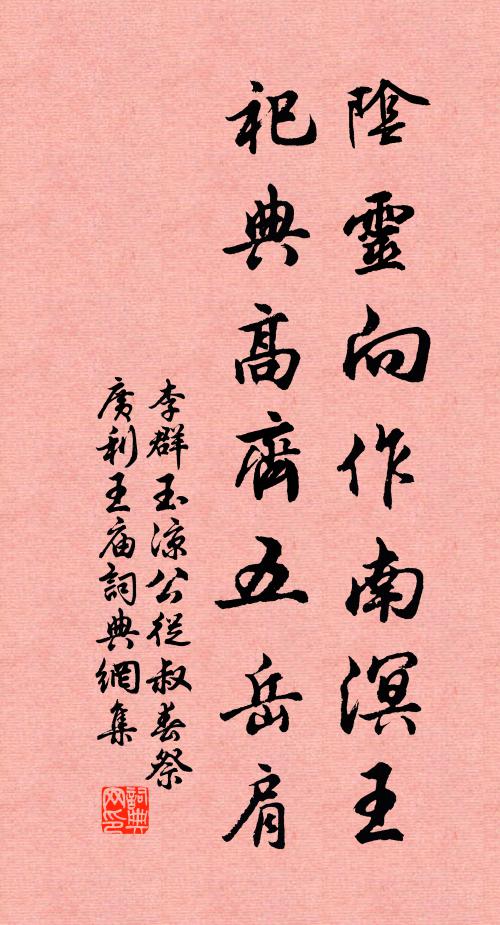 陰靈向作南溟王
祀典高齊五岳肩
李群玉涼公從叔春祭
廣利王庙詞典網集
詞典
网印